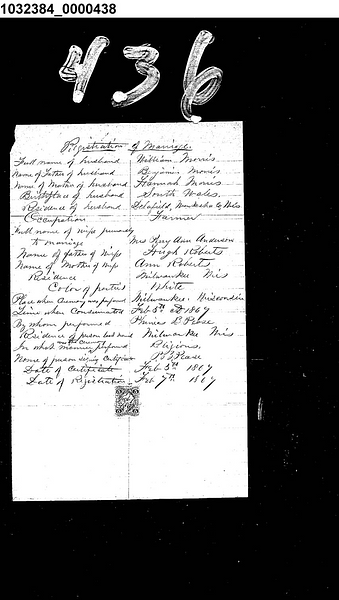 1032384_0000438
436
Registration of Marriage.
Full name of husband William Morris
Name of Father of husband Benjamin Morris
Name of Mother of husband Hannah Morris
Birthplace of husband South Wales.
Residence of husband Delafield, Waukesha Co Wis
Occupation Farmer
Full name of wife previously
to marriage Mrs Mary Ann Anderson
Name of father of wife Hugh Roberts
Name of Mother of wife Ann Roberts
Residence Milwaukee Wis
Color of parties White
Place when Ceremony was performed Milwaukee. Wisconsin
Time when Consummated Feb 5th 1867
By whom performed E Pease
Residence of person last named Milwaukee Wis
In what manner was the Ceremony performed Religious.
Name of person signing Certificate Pease
Date of Certificate Feb 5th 1867
Date of Registration Feb 7th 1867